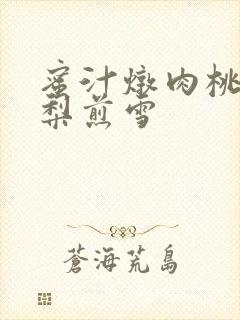 蜜汁燉肉桃
梨煎雪
蒼海荒島